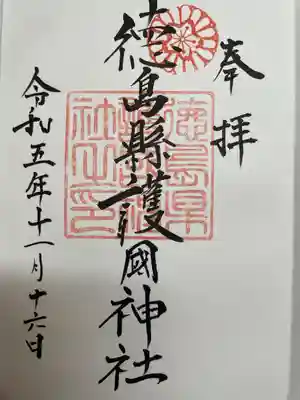 奉拝
徳島縣護國神社
令和五年十一月十六日
徳島県
護國神
社之印